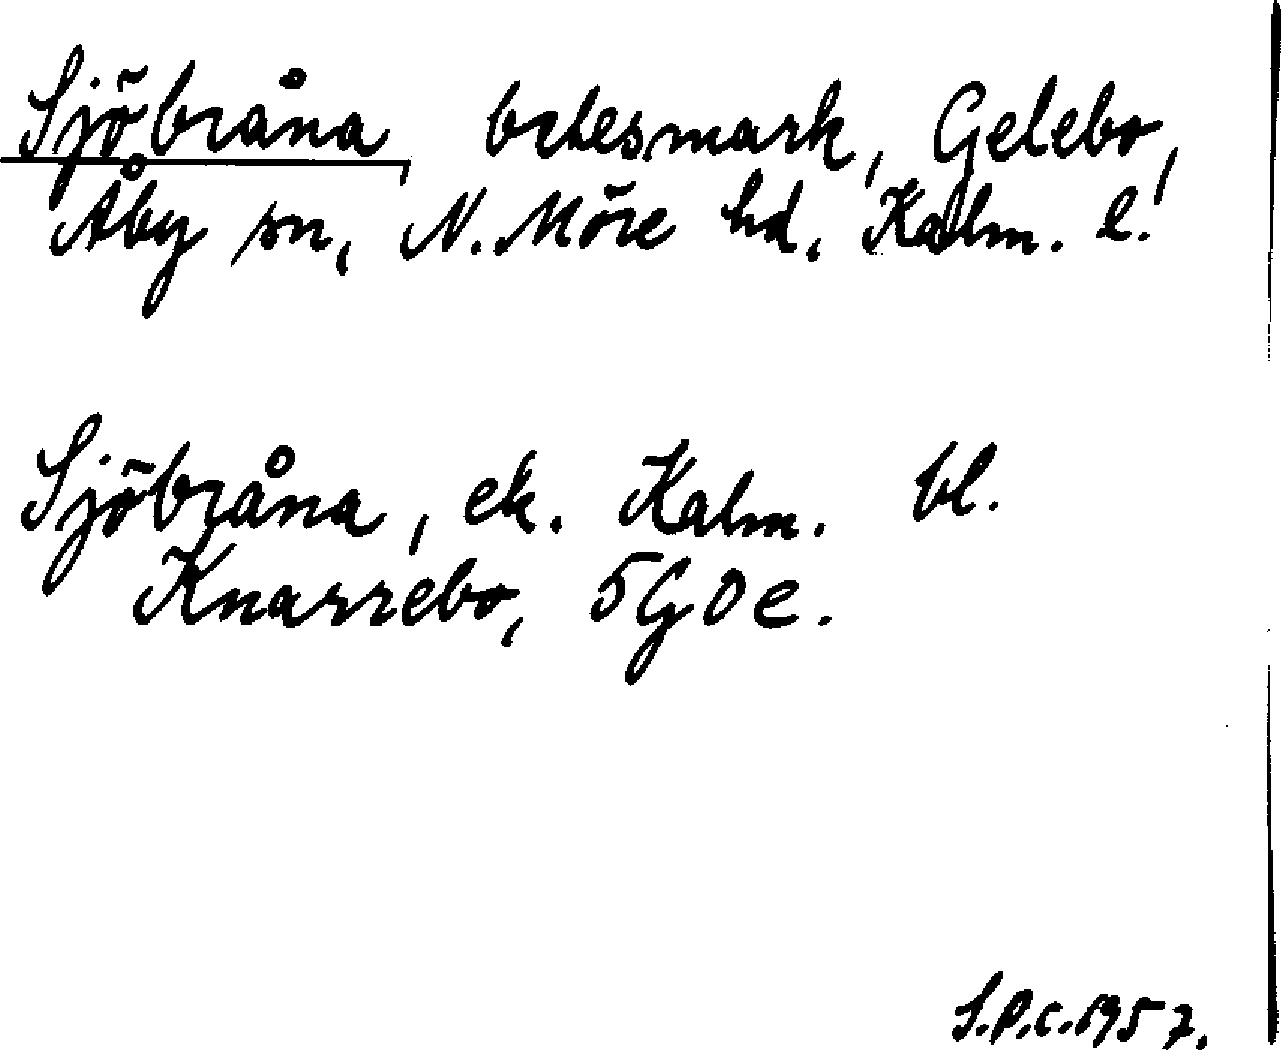 Sjöbråna, betesmark, Gelebo,
Åby sn, N. Möre hd, Kalm. l.
Sjöbråna, ek. Kalm. bl.
Knarrebo, 5G0e.
S.P.C. 1957.